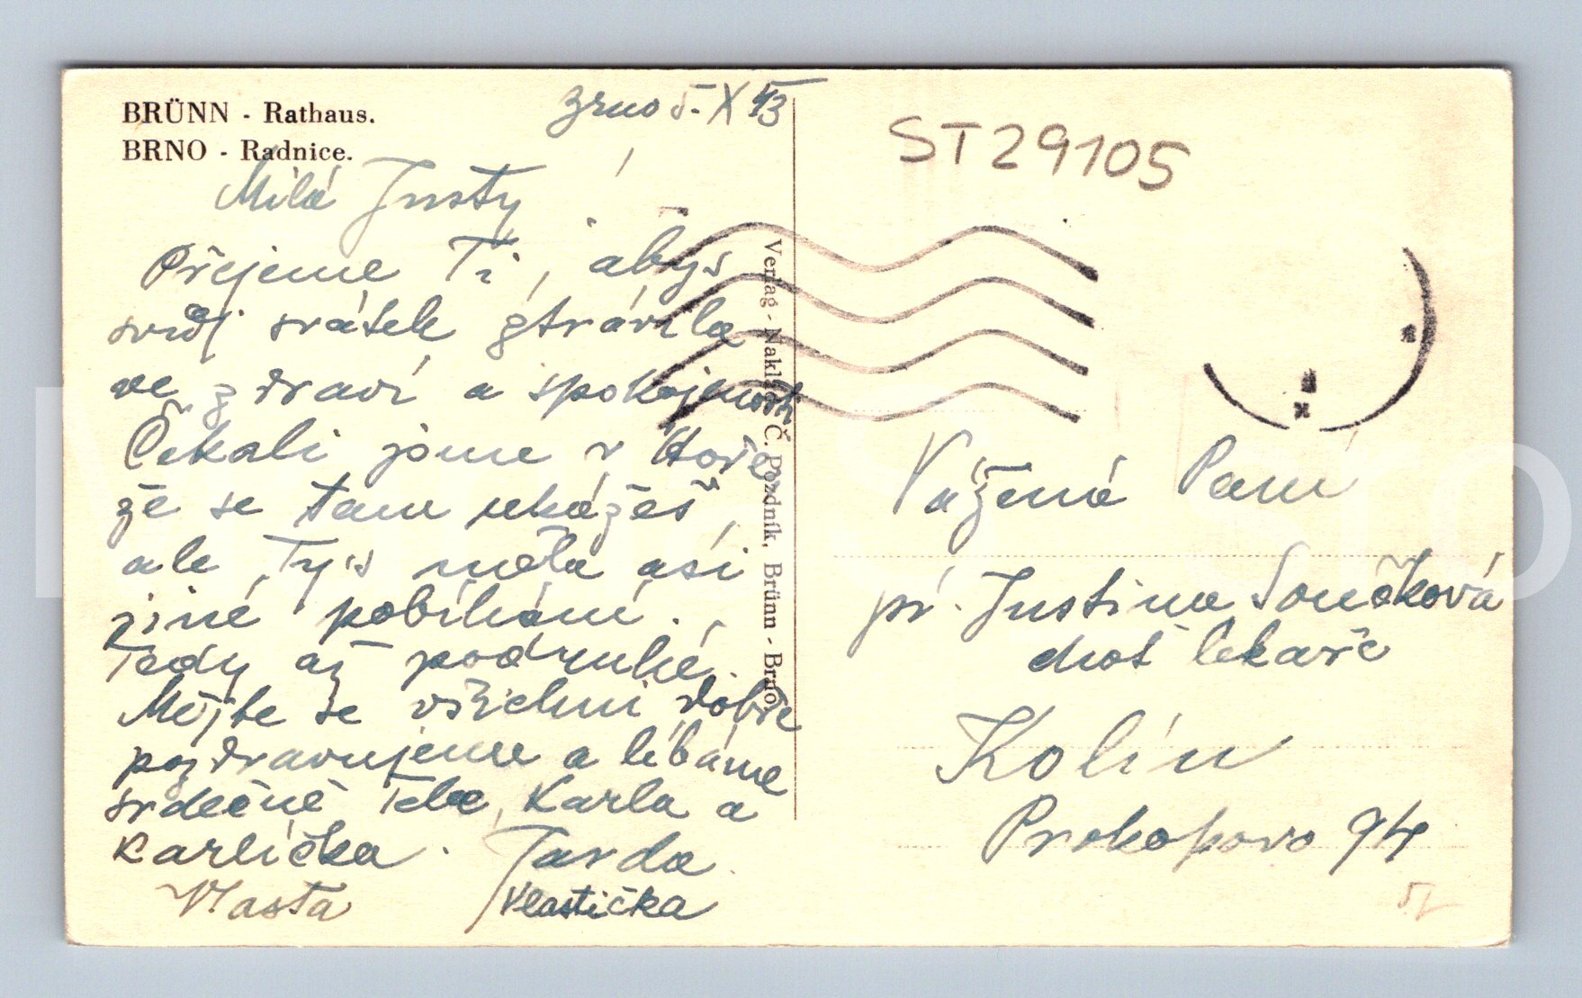 BRÜNN - Rathaus.
BRNO - Radnice.
Brno 5. X 43
Milá Justy
Přejeme Ti, abys
svůj svátek ztrávila
ve zdraví a spokojenosti
Čekali jsme v
že se tam ukážeš,
ale Tys měla asi
jiné pobíhání.
Tedy až podruhé.
Mějte se všichni dobře
pozdravujeme a líbáme
srdečně Tebe, Karla a
Karlíčka. Jarda
Vlasta Vlastička
Verlag - Nakl. Č. Pozdník, Brünn - Brno.
ST29105
Vážená Paní
pí. Justina Součková
choť lékaře
Kolín
Prokopovo 94